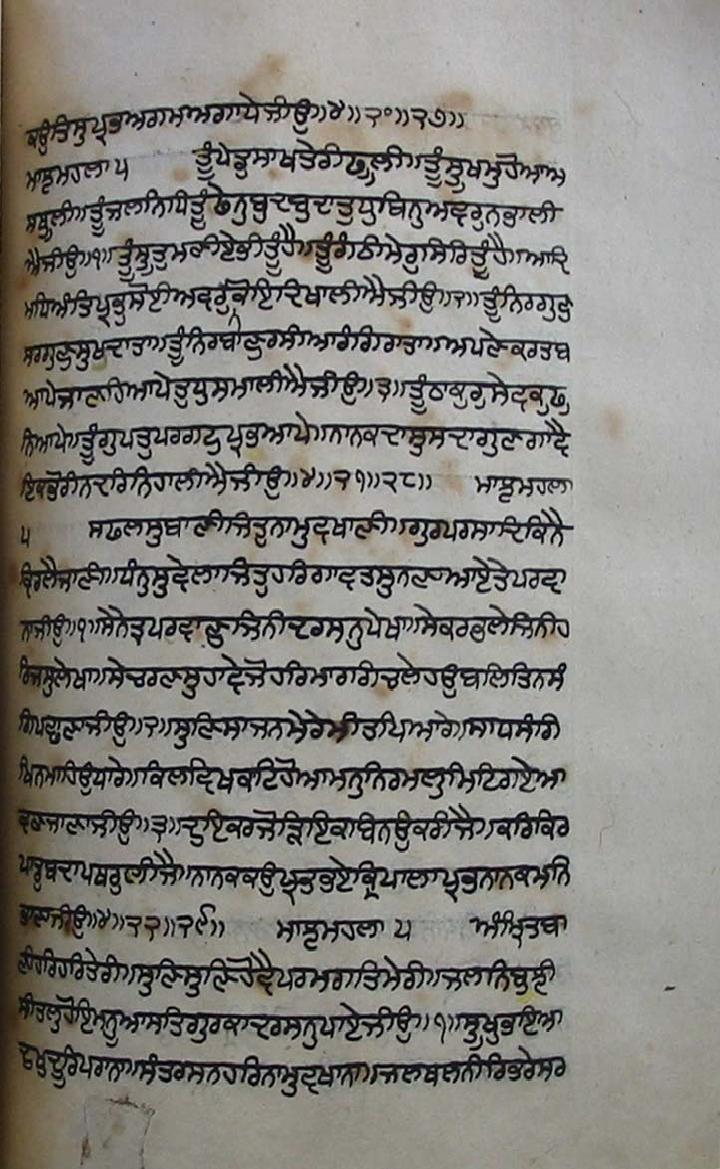 ਕਉਤਿਸੁਪ੍ਰਭਅਗਮਅਗਾਧੇਜੀਉ॥੪॥੨੦॥੨੭॥
ਮਾਝਮਹਲਾ ੫ ਤੂੰਪੇਡੁਸਾਖਤੇਰੀਫੂਲੀ॥ਤੂੰਸੂਖਮੁਹੋਆਅ
ਸਥੂਲੀ॥ਤੂੰਜਲਨਿਧਿਤੂੰਫੇਨੁਬੁਦਬੁਦਾਤੁਧੁਬਿਨੁਅਵਰੁਨਭਾਲੀ
ਐਜੀਉ॥੧॥ਤੂੰਸੂਤੁਮਣੀਏਭੀਤੂੰਹੈ॥ਤੂੰਗੰਠੀਮੇਰੁਸਿਰਿਤੂੰਹੈ॥ਆਦਿ
ਮਧਿਅੰਤਿਪ੍ਰਭੁਸੋਈਅਵਰੁਕੋਇਦਿਖਾਲੀਐਜੀਉ॥੨॥ਤੂੰਨਿਰਗੁਣੁ
ਸਰਗੁਣੁਸੁਖਦਾਤਾ॥ਤੂੰਨਿਰਬਾਣੁਰਸੀਆਰੰਗਿਰਾਤਾ॥ਅਪਣੇਕਰਤਬ
ਆਪੇਜਾਣਹਿਆਪੇਤੁਧੁਸਮਾਲੀਐਜੀਉ॥੩॥ਤੂੰਠਾਕੁਰੁਸੇਵਕੁਫੁ
ਨਿਆਪੇ॥ਤੂੰਗੁਪਤੁਪਰਗਟੁਪ੍ਰਭਆਪੇ॥ਨਾਨਕਦਾਸੁਸਦਾਗੁਣਗਾਵੈ
ਇਕਭੋਰੀਨਦਰਿਨਿਹਾਲੀਐਜੀਉ॥੪॥੨੧॥੨੮॥ ਮਾਝਮਹਲਾ
੫ ਸਫਲਸੁਬਾਣੀਜਿਤੁਨਾਮੁਵਖਾਣੀ॥ਗੁਰਪਰਸਾਦਿਕਿਨੈ
ਵਿਰਲੈਜਾਣੀ॥ਧੰਨੁਸੁਵੇਲਾਜਿਤੁਹਰਿਗਾਵਤਸੁਨਣਾਆਏਤੇਪਰਵਾ
ਨਾਜੀਉ॥੧॥ਸੇਨੇਤ੍ਰਪਰਵਾਣੁਜਿਨੀਦਰਸਨੁਪੇਖਾ॥ਸੇਕਰਭਲੇਜਿਨੀਹ
ਰਿਜਸੁਲੇਖਾ॥ਸੇਚਰਣਸੁਹਾਵੇਜੋਹਰਿਮਾਰਗਿਚਲੇਹਉਬਲਿਤਿਨਸੰ
ਗਿਪਛਾਣਾਜੀਉ॥੨॥ਸੁਣਿਸਾਜਨਮੇਰੇਮੀਤਪਿਆਰੇ॥ਸਾਧਸੰਗਿ
ਖਿਨਮਾਹਿਉਧਾਰੇ॥ਕਿਲਵਿਖਕਟਿਹੋਆਮਨੁਨਿਰਮਲੁਮਿਟਿਗਏਆ
ਵਣਜਾਣਾਜੀਉ॥੩॥ਦੁਇਕਰਜੋੜਿਇਕੁਬਿਨਉਕਰੀਜੈ॥ਕਰਿਕਿਰ
ਪਾਡੁਬਦਾਪਥਰੁਲੀਜੈ॥ਨਾਨਕਕਉਪ੍ਰਭਭਏਕ੍ਰਿਪਾਲਾਪ੍ਰਭਨਾਨਕਮਨਿ
ਭਾਣਾਜੀਉ॥੪॥੨੨॥੨੯॥ ਮਾਝਮਹਲਾ ੫ ਅੰਮ੍ਰਿਤਬਾ
ਣੀਹਰਿਹਰਿਤੇਰੀ॥ਸੁਣਿਸੁਣਿਹੋਵੈਪਰਮਗਤਿਮੇਰੀ॥ਜਲਨਿਬੁਝੀ
ਸੀਤਲੁਹੋਇਮਨੂਆਸਤਿਗੁਰਕਾਦਰਸਨੁਪਾਏਜੀਉ॥੧॥ਸੂਖੁਭਇਆ
ਦੁਖੁਦੂਰਿਪਰਾਨਾ॥ਸੰਤਰਸਨਹਰਿਨਾਮੁਵਖਾਨਾ॥ਜਲਥਲਨੀਰਿਭਰੇਸਰ